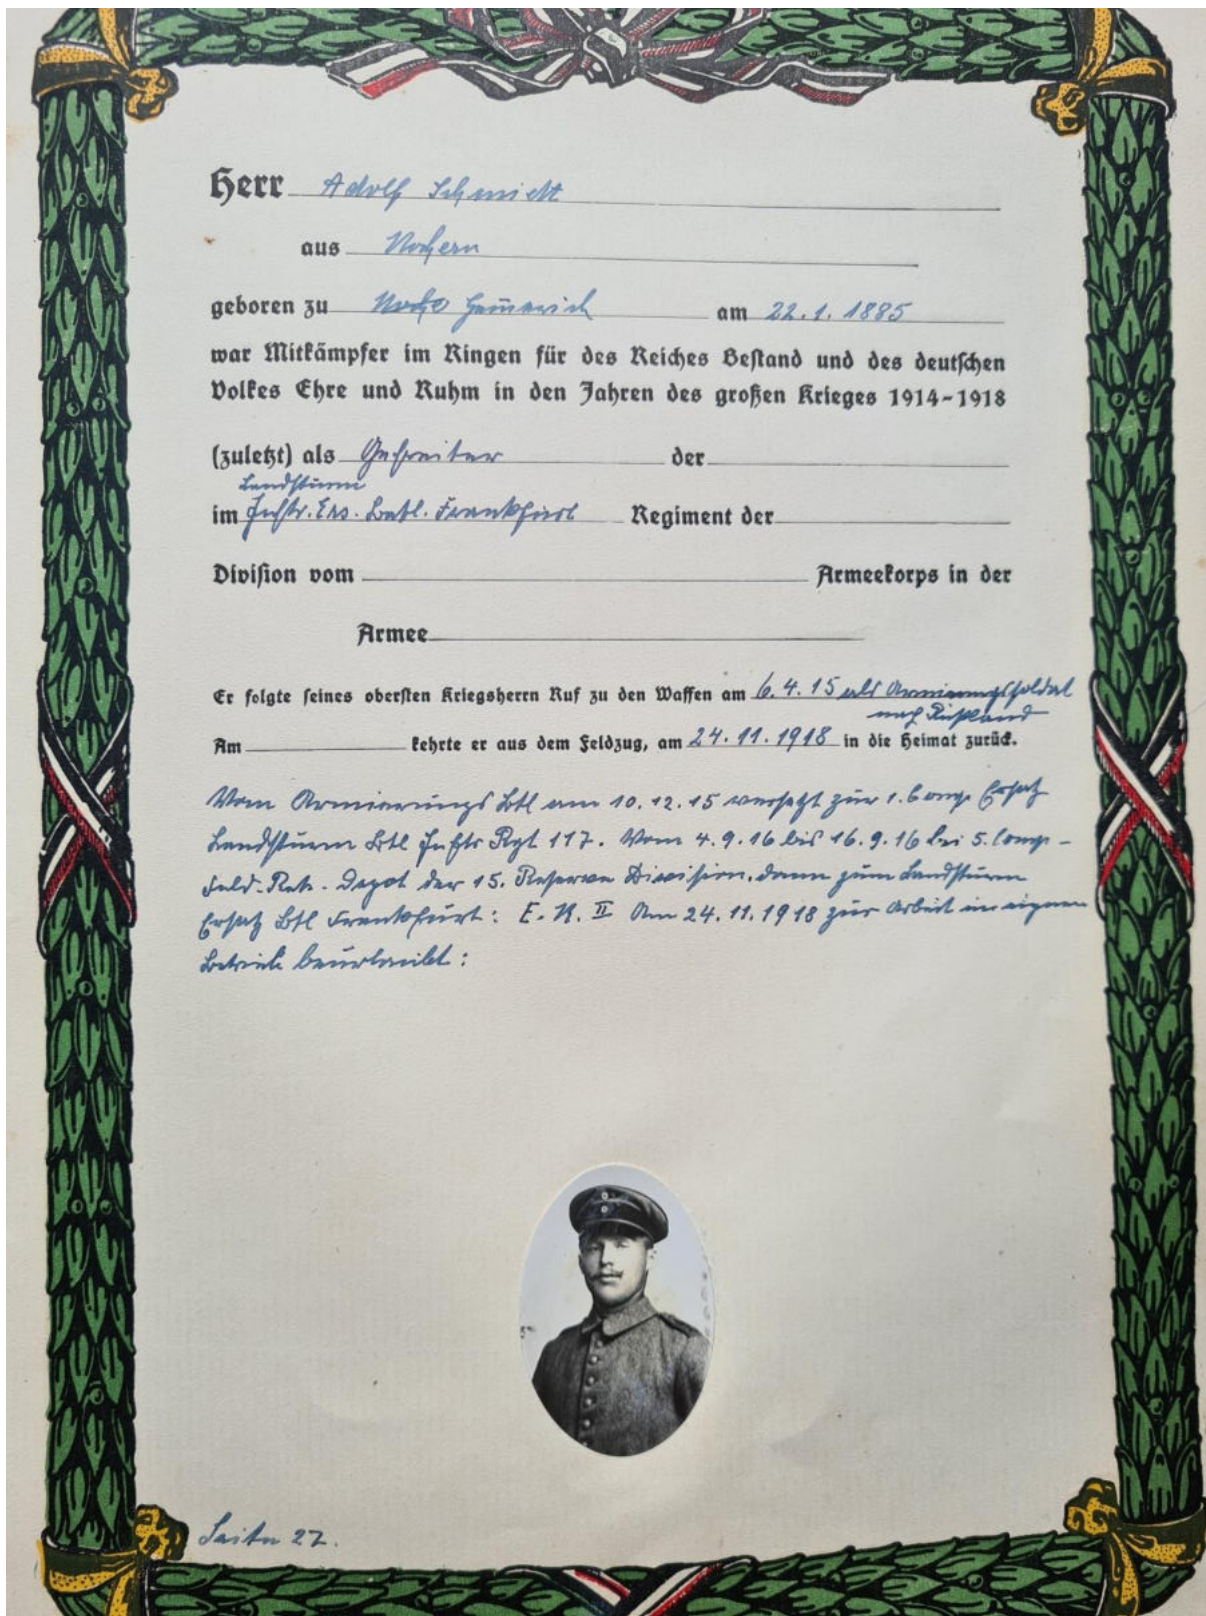 Herr Adolf Schmidt
aus Nochern
geboren zu am 22.1.1885
war Mitkämpfer im Ringen für des Reiches Bestand und des deutschen
Volkes Ehre und Ruhm in den Jahren des großen Krieges 1914-1918
(zuletzt) als Gefreiter der
Landsturm
im Inftr. Ers. Batl. Frankfurt Regiment der
Division vom Armeekorps in der
Armee
Er folgte seines obersten Kriegsherrn Ruf zu den Waffen am 6.4.15 als Armierungssoldat
nach Rußland
Am kehrte er aus dem Feldzug, am 24.11.1918 in die Heimat zurück.
Vom Armierungs Btl am 10.12.15 versetzt zur 1. Comp. Ersatz
Landsturm Btl Inftr Rgt 117. Vom 4.9.16 bis 16.9.16 bei 5. Comp-
Feld-Rek. Depot der 15. Reserve Division, dann zum Landsturm
Ersatz Btl Frankfurt: E. K. II Am 24.11.1918 zur Arbeit im eignen
Betrieb beurlaubt:
Seite 27.